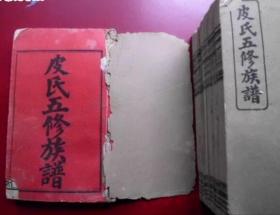 皮氏五修族譜
皮氏五修族譜